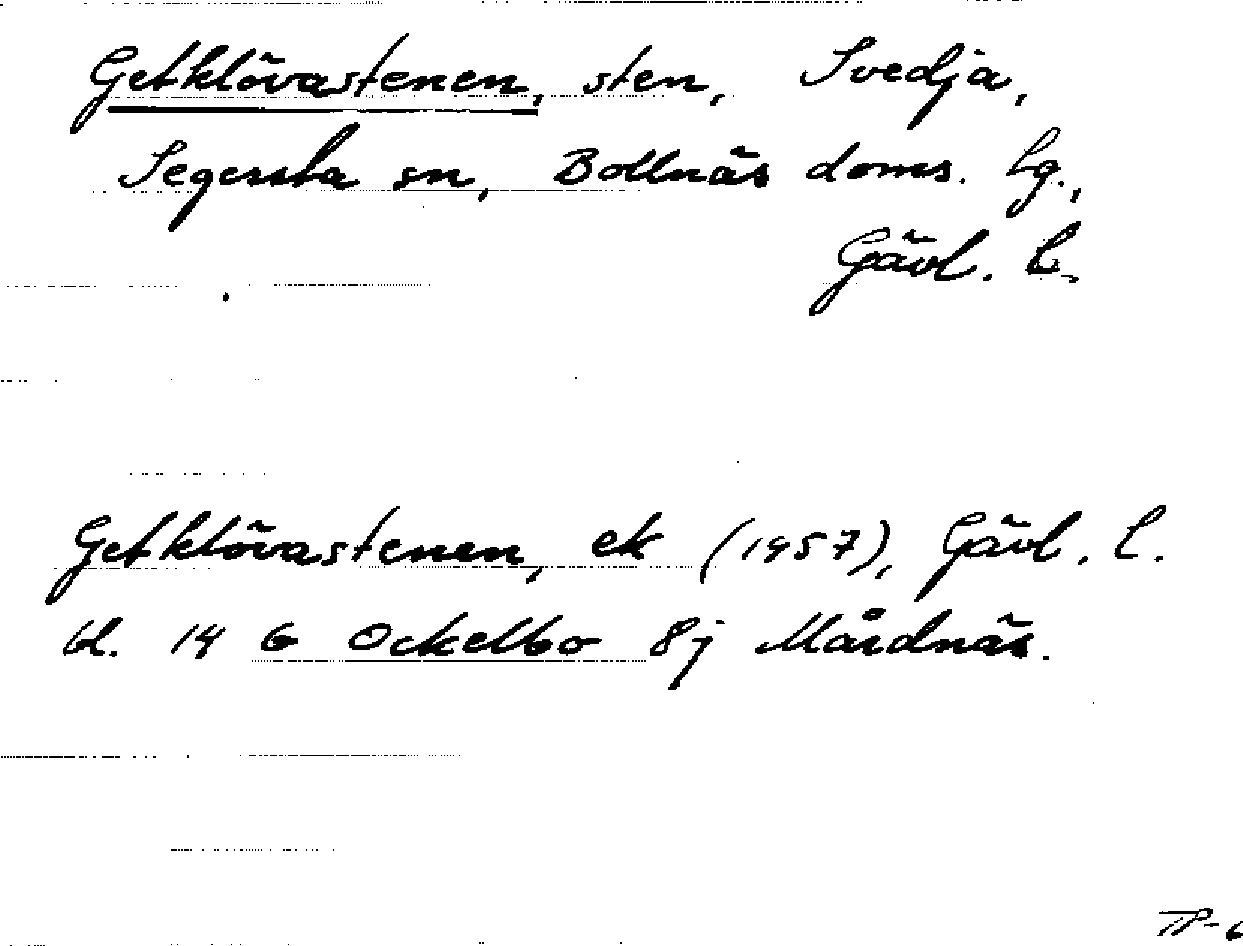 Getklövastenen, sten, Svedja,
Segersta sn, Bollnäs doms. lg.,
Gävl. l.
Getklövastenen, ek (1957), Gävl. l.
bl. 14 G Ockelbo 8j Mårdnäs.
TP-6